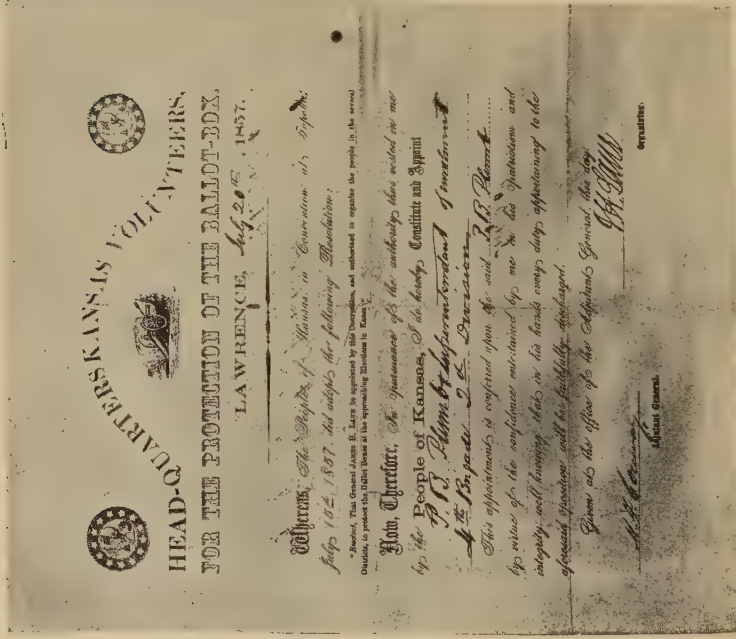 HEAD-QUARTERS KANSAS VOLUNTEERS,
FOR THE PROTECTION OF THE BALLOT-BOX.
LAWRENCE, July 20th, 1857.
Whereas, The People of Kansas, in Convention at Topeka,
July 15th, 1857, did adopt the following Resolution:
"Resolved, That General JAMES H. LANE be appointed by this Convention, and authorized to organize the people in the several
Districts, to protect the Ballot Boxes at the approaching Elections in Kansas."
Now, Therefore, In pursuance of the authority thus vested in me
by the People of Kansas, I do hereby Constitute and Appoint
P. B. Plumb Superintendent of enrolment
4th Brigade 2d Division
This appointment is conferred upon the said P. B. Plumb
by virtue of the confidence entertained by me in his patriotism and
integrity, well knowing that in his hands every duty appertaining to the
aforesaid position will be faithfully discharged.
Given at the office of the Adjutant General, this day.
J. H. Lane
Organizing.
Adjutant General.